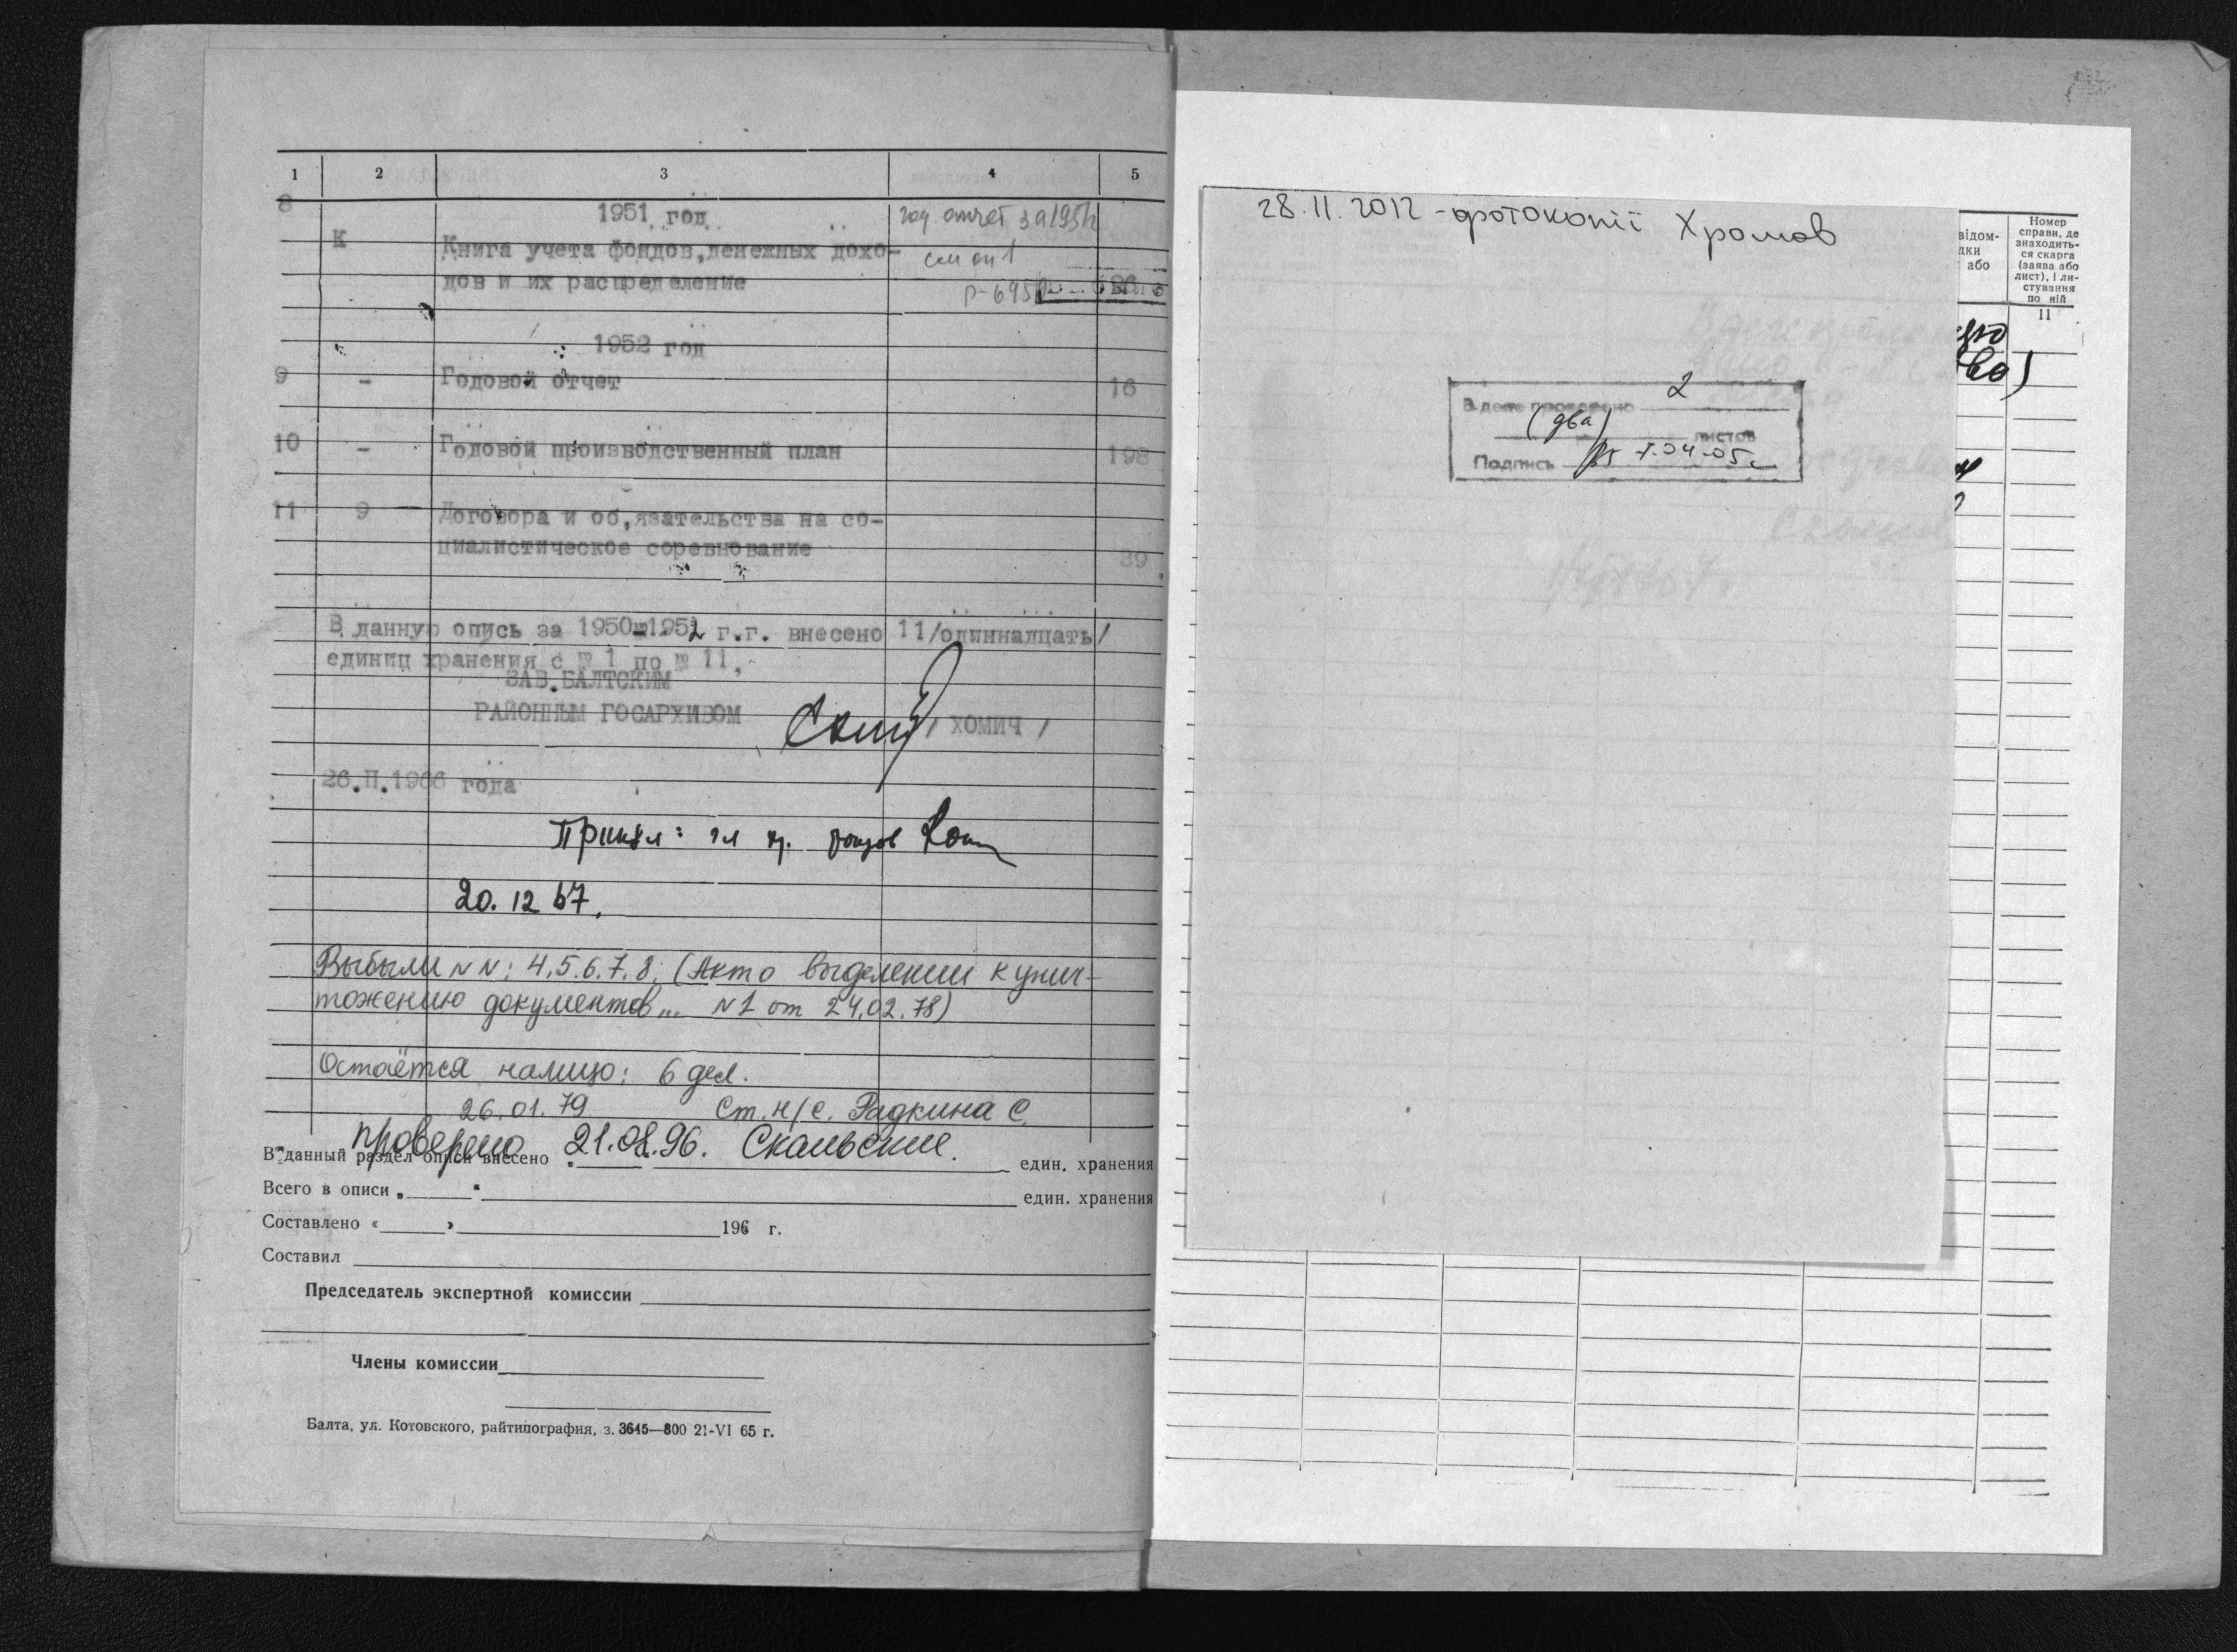 1 2 3 4 5
8 1951 год год. отчет за 1951г
К Книга учета фондов,денежных дохо-
дов и их распределение
1952 год
9 - Годовой отчет 16
10 - Годовой производственный план 198
11 9 - Договора и об,язательства на со-
циалистическое соревнование 39
В данную опись за 1950-1952 г.г. внесено 11/одиннадцать/
единиц хранения с № 1 по № 11.
ЗАВ.БАЛТСКИМ
РАЙОННЫМ ГОСАРХИВОМ / ХОМИЧ /
26.II.1966 года
Принял:
20.12 67.
Выбыли NN: 4.5.6.7.8. (Акт о выделении к унич-
тожению документов... N1 от 24.02.78)
Остаётся налицо: 6 дел.
26.01.79 Ст.н/с. Радкина С.
проверено 21.08.96.
В данный раздел описи внесено един. хранения
Всего в описи „ “ един. хранения
Составлено « » 196 г.
Составил
Председатель экспертной комиссии
Члены комиссии
Балта, ул. Котовского, райтипография, з. 3645—800 21-VI 65 г.
28.11.2012 - фотокопії Хромов
В деле прошнуровано 2
(два) листов
Подпись
відом-
дки
або
Номер
справи, де
знаходить-
ся скарга
(заява або
лист), і ли-
стування
по ній
11